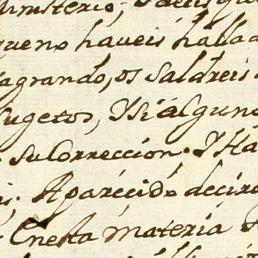 Ministerio, 
que no haveis hallad
agrando, os Saldreis
Sugetos, Y Si alguno
Su Correccion. Y Ha
Aparécido decir
En esta materia